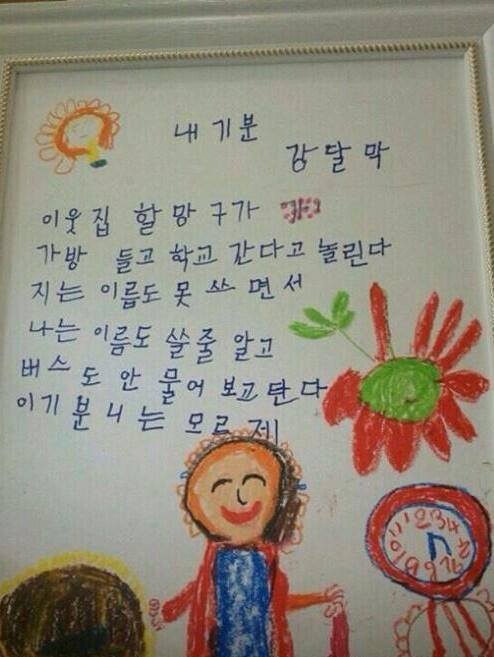 내 기분
강달막
이웃집 할망구가
가방 들고 학교 간다고 놀린다
지는 이름도 못 쓰면서
나는 이름도 쓸줄 알고
버스도 안 물어 보고 탄다
이기분 니는 모르제